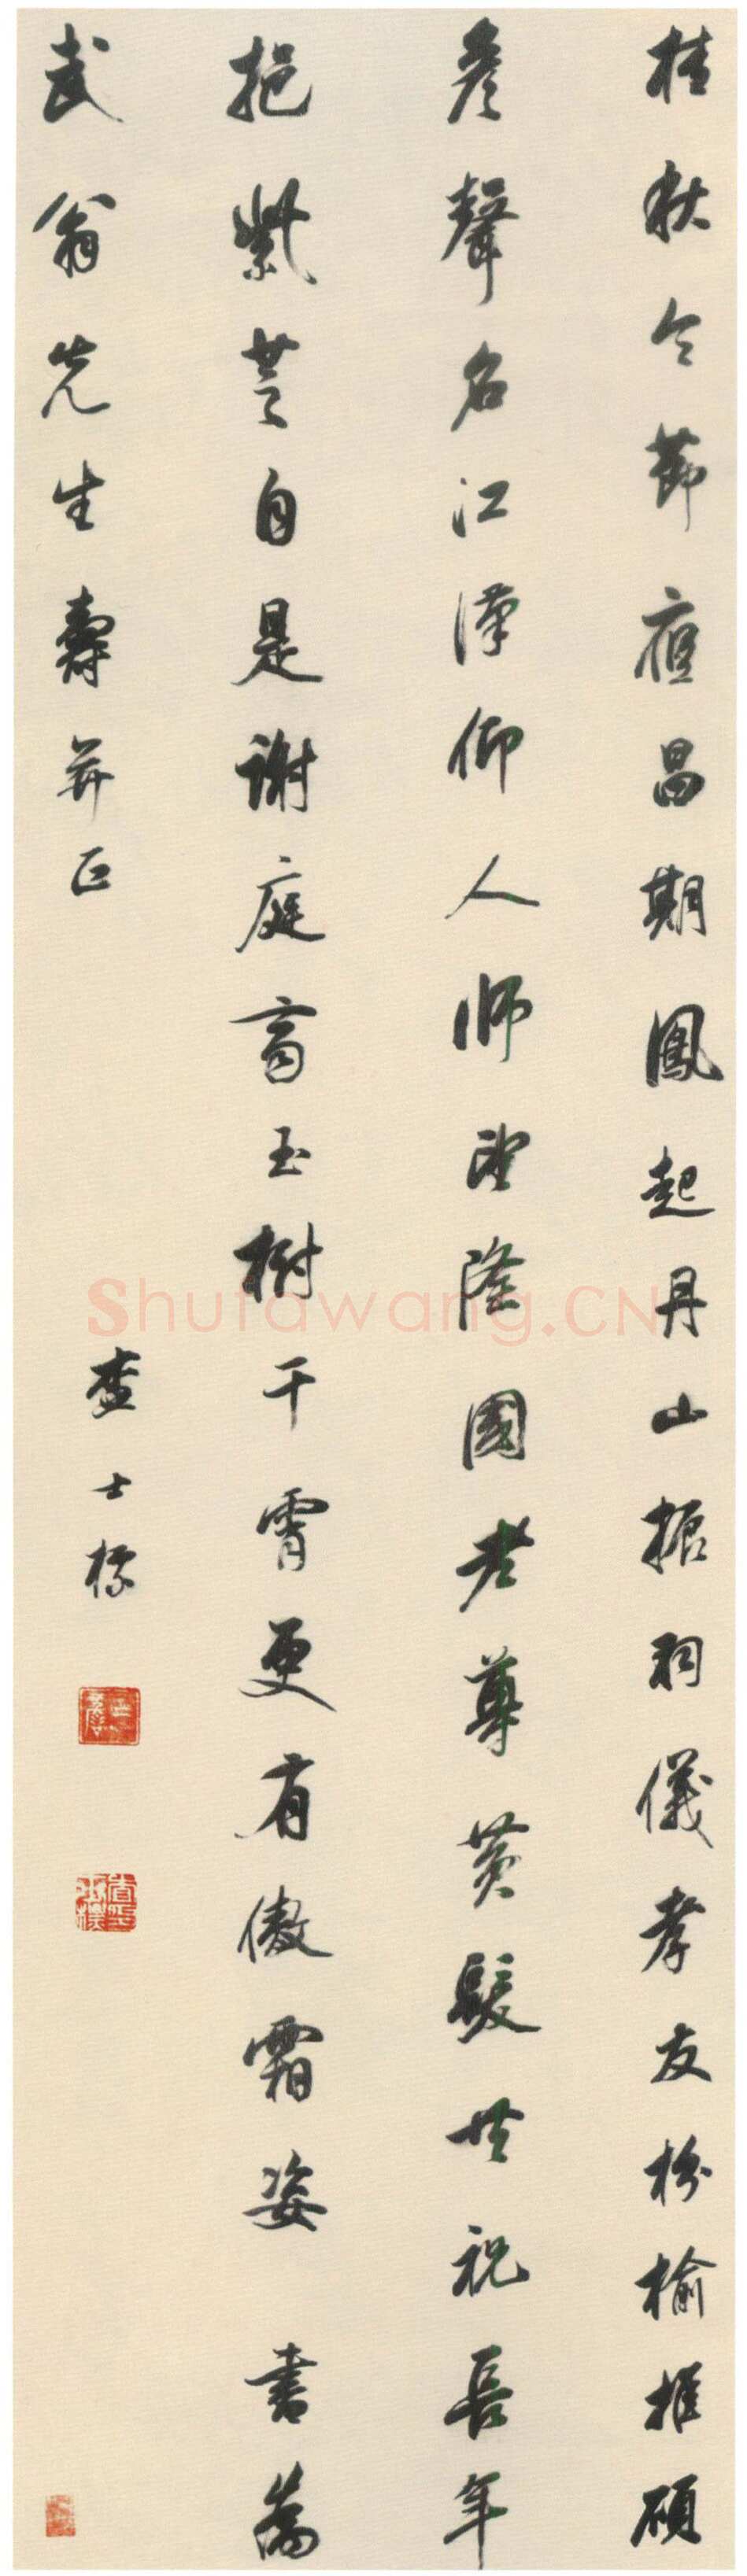 桂秋令節應昌期鳳起丹山振羽儀孝友枌榆推碩
彥聲名江漢仰人師望隆國老尊黃髮世祝長年
挹紫芝自是謝庭高玉樹干霄更有傲霜姿 書為
武翁先生壽并正
查士標
Shufawang.CN